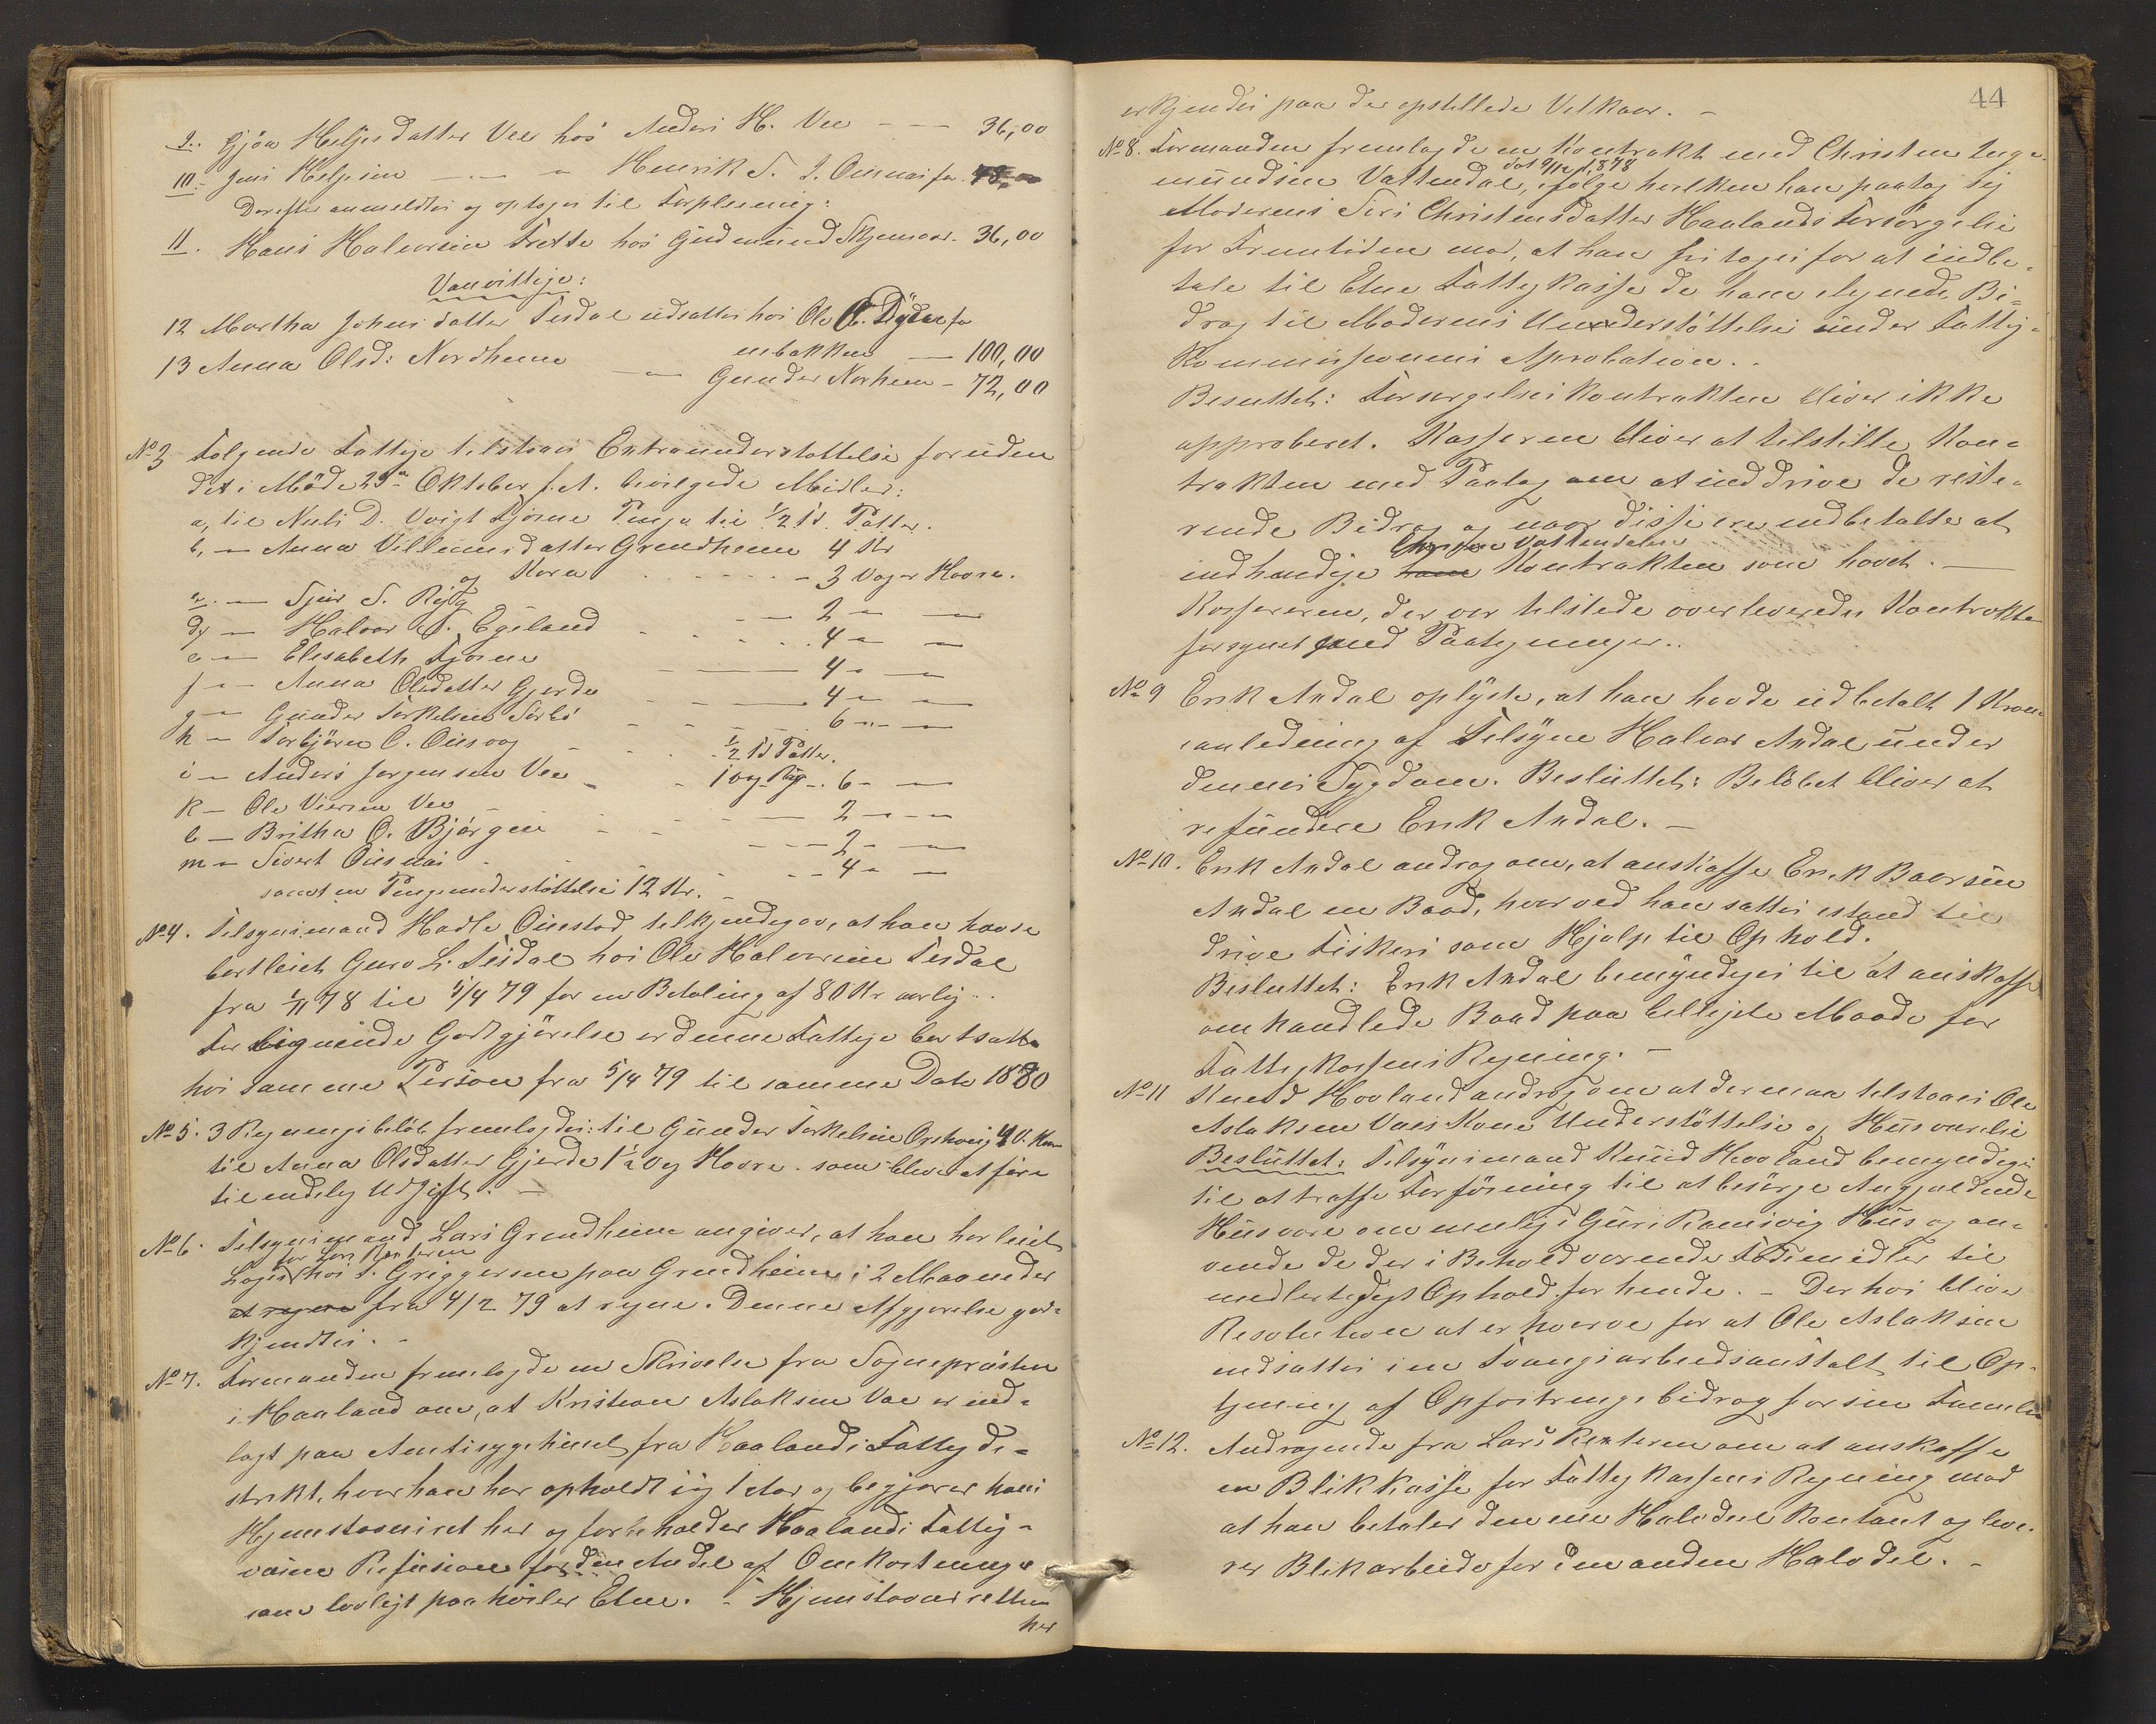 9. Gjøa Heljesdatter Vee hos Anders H. Vee — — 36,00
10. Jens Helgesen — " — Henrik S. I. Ousnæs fa
Derefter anmeldtes og optoges til Forpleining:
11. Hans Halvorsen Frette hos Gudmund Skjensvor. 36,00
Vanvittige:
12 Martha Johnsdatter Tesdal udsattes hos Ole
embakken — 100,00
13 Anna Olsd: Nordheim — " — Gunder Norheim - 72,00
No 3 Følgende Fattige tilstaaes Extraunderstøttelse foruden
det i Møde 29de Oktober f. A. bevilgede Midler:
a, til Neels D. Voigt Fjösne Penge til 1/2 Td. Poteter.
b, — Anna Villumsdatter Grindheim 4 Kr
og Korn - 3 Voger Havre.
c. — Sjur S. Rygg — 2 " —
d, — Halvor S. Egeland . . 4 " —
e — Elisabeth Fjösne — 4 " —
f — Anna Olsdatter Gjerde — 4 " —
g — Gunder Torkelsen Sörbö — 6 " —
h — Torbjörn O. Ousvog . . 1/2 Td Poteter.
i — Anders Jørgensen Vee - 1 Vog Rug -. 6 - —
k — Ole Iversen Vee - — 2 — —
l — Britha O. Bjørgen - — 2 - —
m — Sivert Ousnæs . - 4 - —
samt en Pengeunderstøttelse 12 Kr.
No 4. Tilsynsmand Hadle Ølnestad tilkjendegav, at han havde
bortleiet Guro L. Tesdal hos Ole Halvorsen Tesdal
fra 1/11 78 til 5/4 79 for en Betaling af 80 Kr aarlig..
For lignende Godtgjörelse er denne Fattige bortsatte
hos samme Person fra 5/4 79 til samme Dato 1880
No 5. 3 Regningsbeløb fremlagdes: til Gunder Torkelsen 4 V. Korn
til Anna Olsdatter Gjerde 1 1/2 Vog Havre. som bliver at føre
til endelig Udgift. —
No 6. Tilsynsmand Lars Grindheim angiver, at han har leiet
for Lars Kanteren
Logis hos S. Griggersen paa Grindheim i 2 Maaneder
at regne fra 4/2 79 at regne. Denne Afgjørelse god-
kjendtes. -
No 7. Formanden fremlagde en Skrivelse fra Sognepræsten
i Haaland om, at Kristian Aslaksen Vae er ind-
lagt paa Amtssygehuset fra Haalands Fattigdi-
strikt, hvor han har opholdt sig 1 Aar og begjærer hans
Hjemstavnsret her og forbeholder Haalands Fattig-
væsen Refusion for den Andel af Omkostninger
som lovligt paahviler Etne. - Hjemstavnsretten
her
44
erkjendes paa de opstillede Vilkaar. -
No 8. Formanden fremlagde en Kontrakt med Christen Inge-
dat 9/12 1878
mundsen Vattendal, ifølge hvilken han paatog sig
Moderens Siri Christensdatter Haalands Forsørgelse
for Fremtiden mod, at han fritages for at indbe-
tale til Etne Fattigkasse de ham ilignede Bi-
drag til Moderens Understøttelse under Fattig-
kommissionens Aprobation..
Besluttet: Forsørgelseskontrakten bliver ikke
approberet. Kasseren bliver at tilstille Kon-
trakten med Paalæg om at inddrive de reste-
rende Bidrag og naar disse ere indbetalte at
Christen Vattendalen
indhændige ham Kontrakten som hævet. —
Kassereren, der var tilstede overleveredes Kontrakten
forsynet med Paategninger..
No 9 Erik Ardal oplyste, at han havde udbetalt 1 Krone
i anledning af Tilsyn Halvor Ardal under
dennes Sygdom. Besluttet: Beløbet bliver at
refundere Erik Ardal. —
No 10. Erik Ardal androg om, at anskaffe Erik Baarsen
Ardal en Baad, hvorved han sattes istand til
drive Fiskeri som Hjælp til Ophold.
Besluttet: Erik Ardal bemyndiges til at anskaffe
omhandlede Baad paa billigste Maade for
Fattigkassens Regning. —
No 11 Knud Hovland androg om at der maa tilstaaes Ole
Aslaksen Vaes Kone Understøttelse og Husværelse
Besluttet: Tilsynsmand Knud Hovland bemyndiges
til at træffe Forføining til at besørge Angjældende
Husvære om mulig i Guri Ramsvig Hus og an-
vende de der i Behold værende Fødemidler til
midlertidigt Ophold for hende. - Derhos bliver
Resolution at erhverve for at Ole Aslaksen
indsættes i en Tvangsarbeidsanstalt til Op-
tjening af Opfostringsbidrag for sin Familie
No 12. Andragende fra Lars Kanteren om at anskaffe
en Blikkasse for Fattigkassens Regning mod
at han betaler den ene Halvdel kontant og leve-
rer Blikarbeide for den anden Halvdel. -